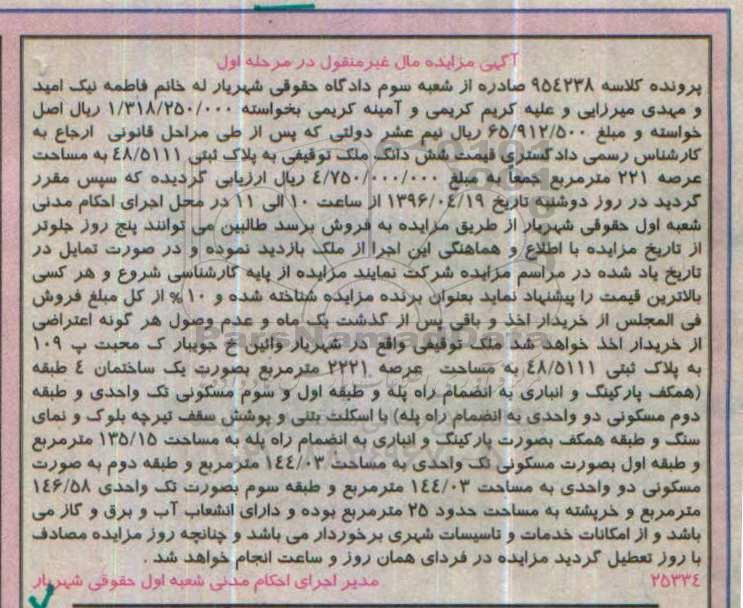 آگهی مزایده مال غیرمنقول در مرحله اول
پرونده کلاسه ٩٥٤٢٣٨ صادره از شعبه سوم دادگاه حقوقی شهریار له خانم فاطمه نیک امید
و مهدی میرزایی و علیه کریم کریمی و آمینه کریمی بخواسته ١/٣١٨/٢٥٠/٠٠٠ ریال اصل
خواسته و مبلغ ٦٥/٩١٢/٥٠٠ ریال نیم عشر دولتی که پس از طی مراحل قانونی ارجاع به
کارشناس رسمی دادگستری قیمت شش دانگ ملک توقیفی به پلاک ثبتی ٤٨/٥١١١ به مساحت
عرصه ٢٢١ مترمربع جمعاً به مبلغ ٤/٧٥٠/٠٠٠/٠٠٠ ریال ارزیابی گردیده که سپس مقرر
گردید در روز دوشنبه تاریخ ١٣٩٦/٠٤/١٩ از ساعت ١٠ الی ١١ در محل اجرای احکام مدنی
شعبه اول حقوقی شهریار از طریق مزایده به فروش برسد طالبین می توانند پنج روز جلوتر
از تاریخ مزایده با اطلاع و هماهنگی این اجرا از ملک بازدید نموده و در صورت تمایل در
تاریخ یاد شده در مراسم مزایده شرکت نمایند مزایده از پایه کارشناسی شروع و هر کسی
بالاترین قیمت را پیشنهاد نماید بعنوان برنده مزایده شناخته شده و ١٠ % از کل مبلغ فروش
فی المجلس از خریدار اخذ و باقی پس از گذشت یک ماه و عدم وصول هر گونه اعتراضی
از خریدار اخذ خواهد شد ملک توقیفی واقع در شهریار وائین خ جویبار ک محبت پ ١٠٩
به پلاک ثبتی ٤٨/٥١١١ به مساحت عرصه ٢٢٢١ مترمربع بصورت یک ساختمان ٤ طبقه
(همکف پارکینگ و انباری به انضمام راه پله و طبقه اول و سوم مسکونی تک واحدی و طبقه
دوم مسکونی دو واحدی به انضمام راه پله) با اسکلت بتنی و پوشش سقف تیرچه بلوک و نمای
سنگ و طبقه همکف بصورت پارکینگ و انباری به انضمام راه پله به مساحت ١٣٥/١٥ مترمربع
و طبقه اول بصورت مسکونی تک واحدی به مساحت ١٤٤/٠٣ مترمربع و طبقه دوم به صورت
مسکونی دو واحدی به مساحت ١٤٤/٠٣ مترمربع و طبقه سوم بصورت تک واحدی ١٤٦/٥٨
مترمربع و خرپشته به مساحت حدود ٢٥ مترمربع بوده و دارای انشعاب آب و برق و گاز می
باشد و از امکانات خدمات و تاسیسات شهری برخوردار می باشد و چنانچه روز مزایده مصادف
با روز تعطیل گردید مزایده در فردای همان روز و ساعت انجام خواهد شد .
٢٥٣٣٤ مدیر اجرای احکام مدنی شعبه اول حقوقی شهریار